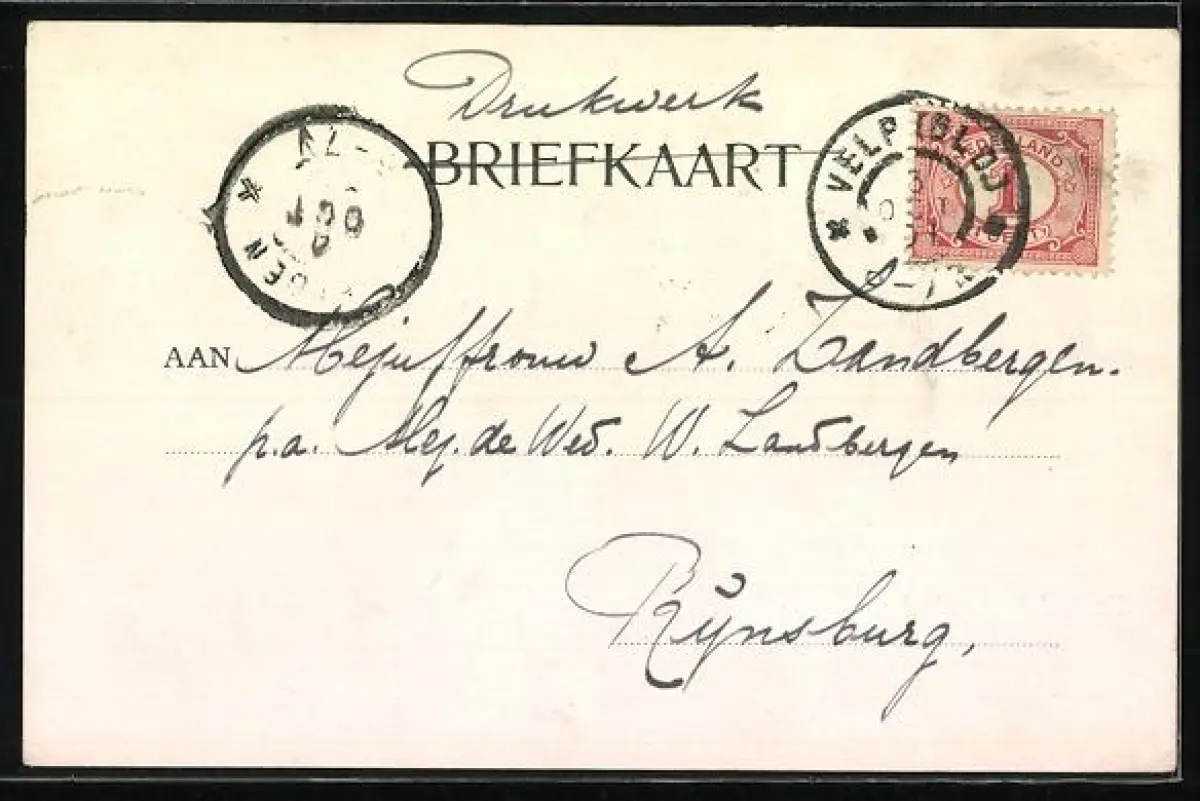 Drukwerk
BRIEFKAART
VELP (GLD)
LAND
1
CENT
AAN Mejuffrouw A. Zandbergen.
p.a. Mej. de Wed. W. Zandbergen
Rijnsburg,